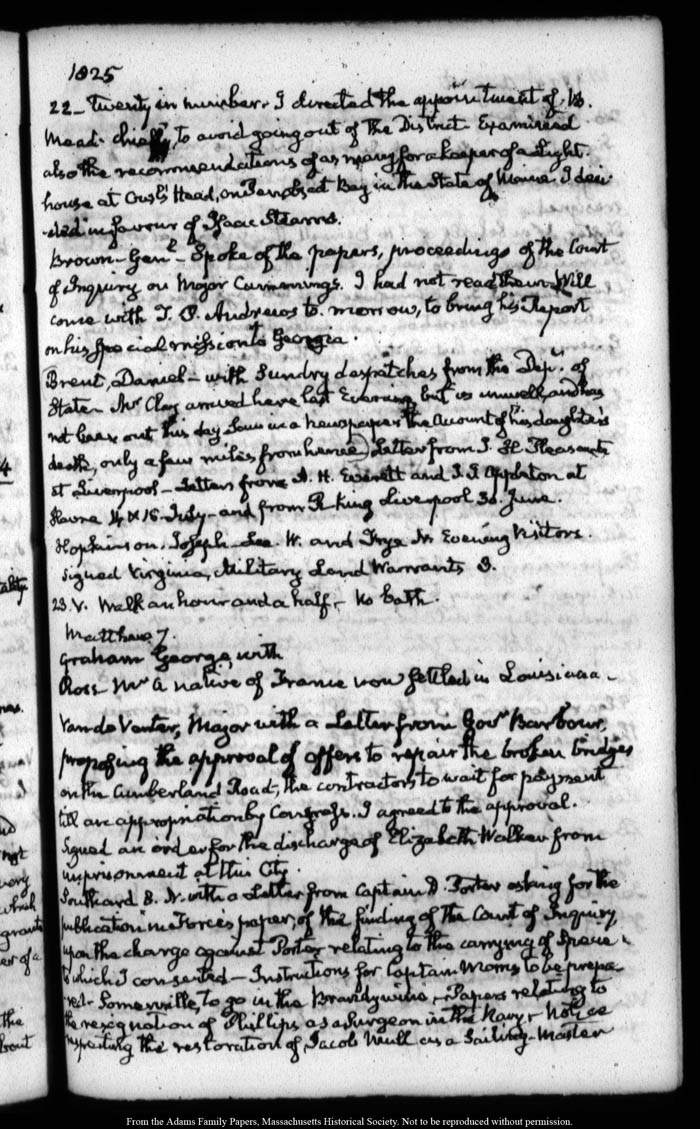 1825
22 – Twenty in number. I directed the appointment of W.
Mead. chiefly, to avoid going out of the District. Examined
also the recommendations of as many for a keeper of a Light.
house at Owl's Head, on Penobscot Bay in the State of Maine. I deci-
-ded in favour of Isaac Stearns.
Brown – Genl – Spoke of the papers, proceedings of the Court
of Inquiry on Major Cummings. I had not read them. Will
come with T. P. Andrews to-morrow, to bring his Report
on his special mission to Georgia.
Brent, Daniel – with Sundry despatches from the Dept. of
State – Mr Clay arrived here last Evening but is unwell, and has
not been out this day (saw in a newspaper the Account of his daughter's
death, only a few miles from hence) Letter from J. H. Pleasants
at Liverpool – Letters from A. H. Everett and J. J. Appleton at
Havre 14 & 16 July – and from R. King Liverpool 30. June.
Hopkinson. Joseph – Lee. W. and Frye N. Evening Visitors.
Signed Virginia, Military Land Warrants 3.
23. V. Walk an hour and a half. No bath.
Matthew 7.
Graham George, with
Ross Mr a native of France now settled in Louisiana.
Van de Venter, Major with a Letter from Govr Barbour,
proposing the approval of offers to repair the broken bridges
on the Cumberland Road; the contractors to wait for payment
till an appropriation by Congress. I agreed to the approval.
Signed an order for the discharge of Elizabeth Walker from
imprisonment at this City.
Southard S. N. with a Letter from Captain D. Porter asking for the
publication in Force's paper, of the finding of the Court of Inquiry
upon the charge against Porter relating to the carrying of Specie.
to which I consented – Instructions for Captain Morris to be prepa-
-red. Somerville, to go in the Brandywine. Papers relating to
the resignation of Phillips as a Surgeon in the Navy. Notice
respecting the restoration of Jacob Mull as a Sailing-Master
From the Adams Family Papers, Massachusetts Historical Society. Not to be reproduced without permission.